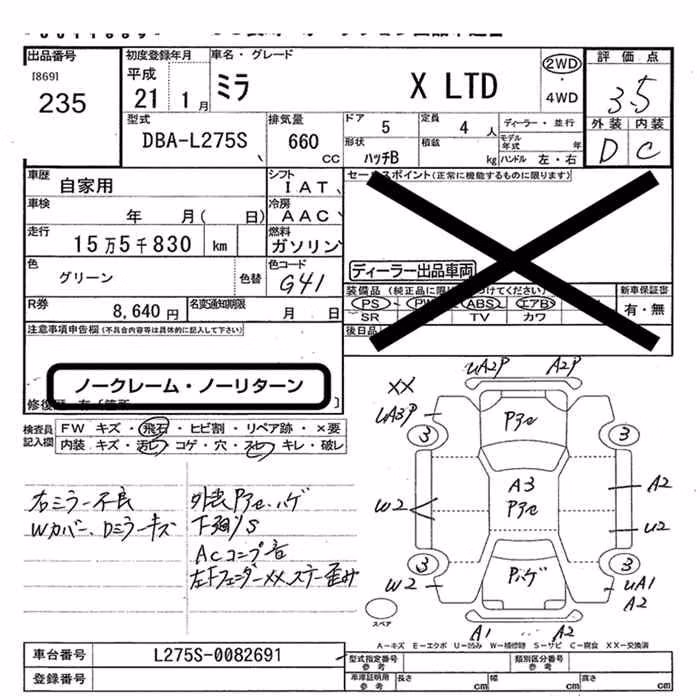 出品番号
18691
235
初度登録年月
平成
21 1月
車名・グレード
ミラ X LTD
2WD
・
4WD
評価点
3.5
外装 内装
D C
型式
DBA-L275S
排気量
660
CC
ドア
5
定員
4人
形状
ハッチB
積載
kg
ディーラー・並行
モデル年式 年
ハンドル 左・右
車歴
自家用
シフト
IAT
車検
年 月( 日)
冷房
AAC
走行
15万5千830 km
燃料
ガソリン
色
グリーン
色替
色コード
G41
R券
8,640円
名変通知期限
月 日
セールスポイント(正常に機能するものに限ります)
ディーラー出品車両
PS
ABS
エアB
SR TV カワ
新車保証書
有・無
後日品
注意事項申告欄(不具合内容等は具体的に記入して下さい)
ノークレーム・ノーリターン
検査員記入欄
FW キズ・飛石・ヒビ割・リペア跡・×要
内装 キズ・汚し・コゲ・穴・・キレ・破レ
右ミラー不良
Wカバー、Dミラーキズ
外装Pアセ、ハゲ
下廻りS
ACコンプ音
左Fフェンダー××ステー歪み
uA2P A2P
××
uA3P
Pアセ
3 3
A3
Pアセ
W2
A2
U2
3 3
W2
Pハゲ
uA1
A2
スペア
A1 A2
A-キズ E-エクボ U-凹み W-補修跡 S-サビ C-腐食 XX-交換済
車台番号
L275S-0082691
登録番号
型式指定番号
参考
類別区分番号
参考
車庫証明用
参考
長さ cm 幅 cm 高さ cm